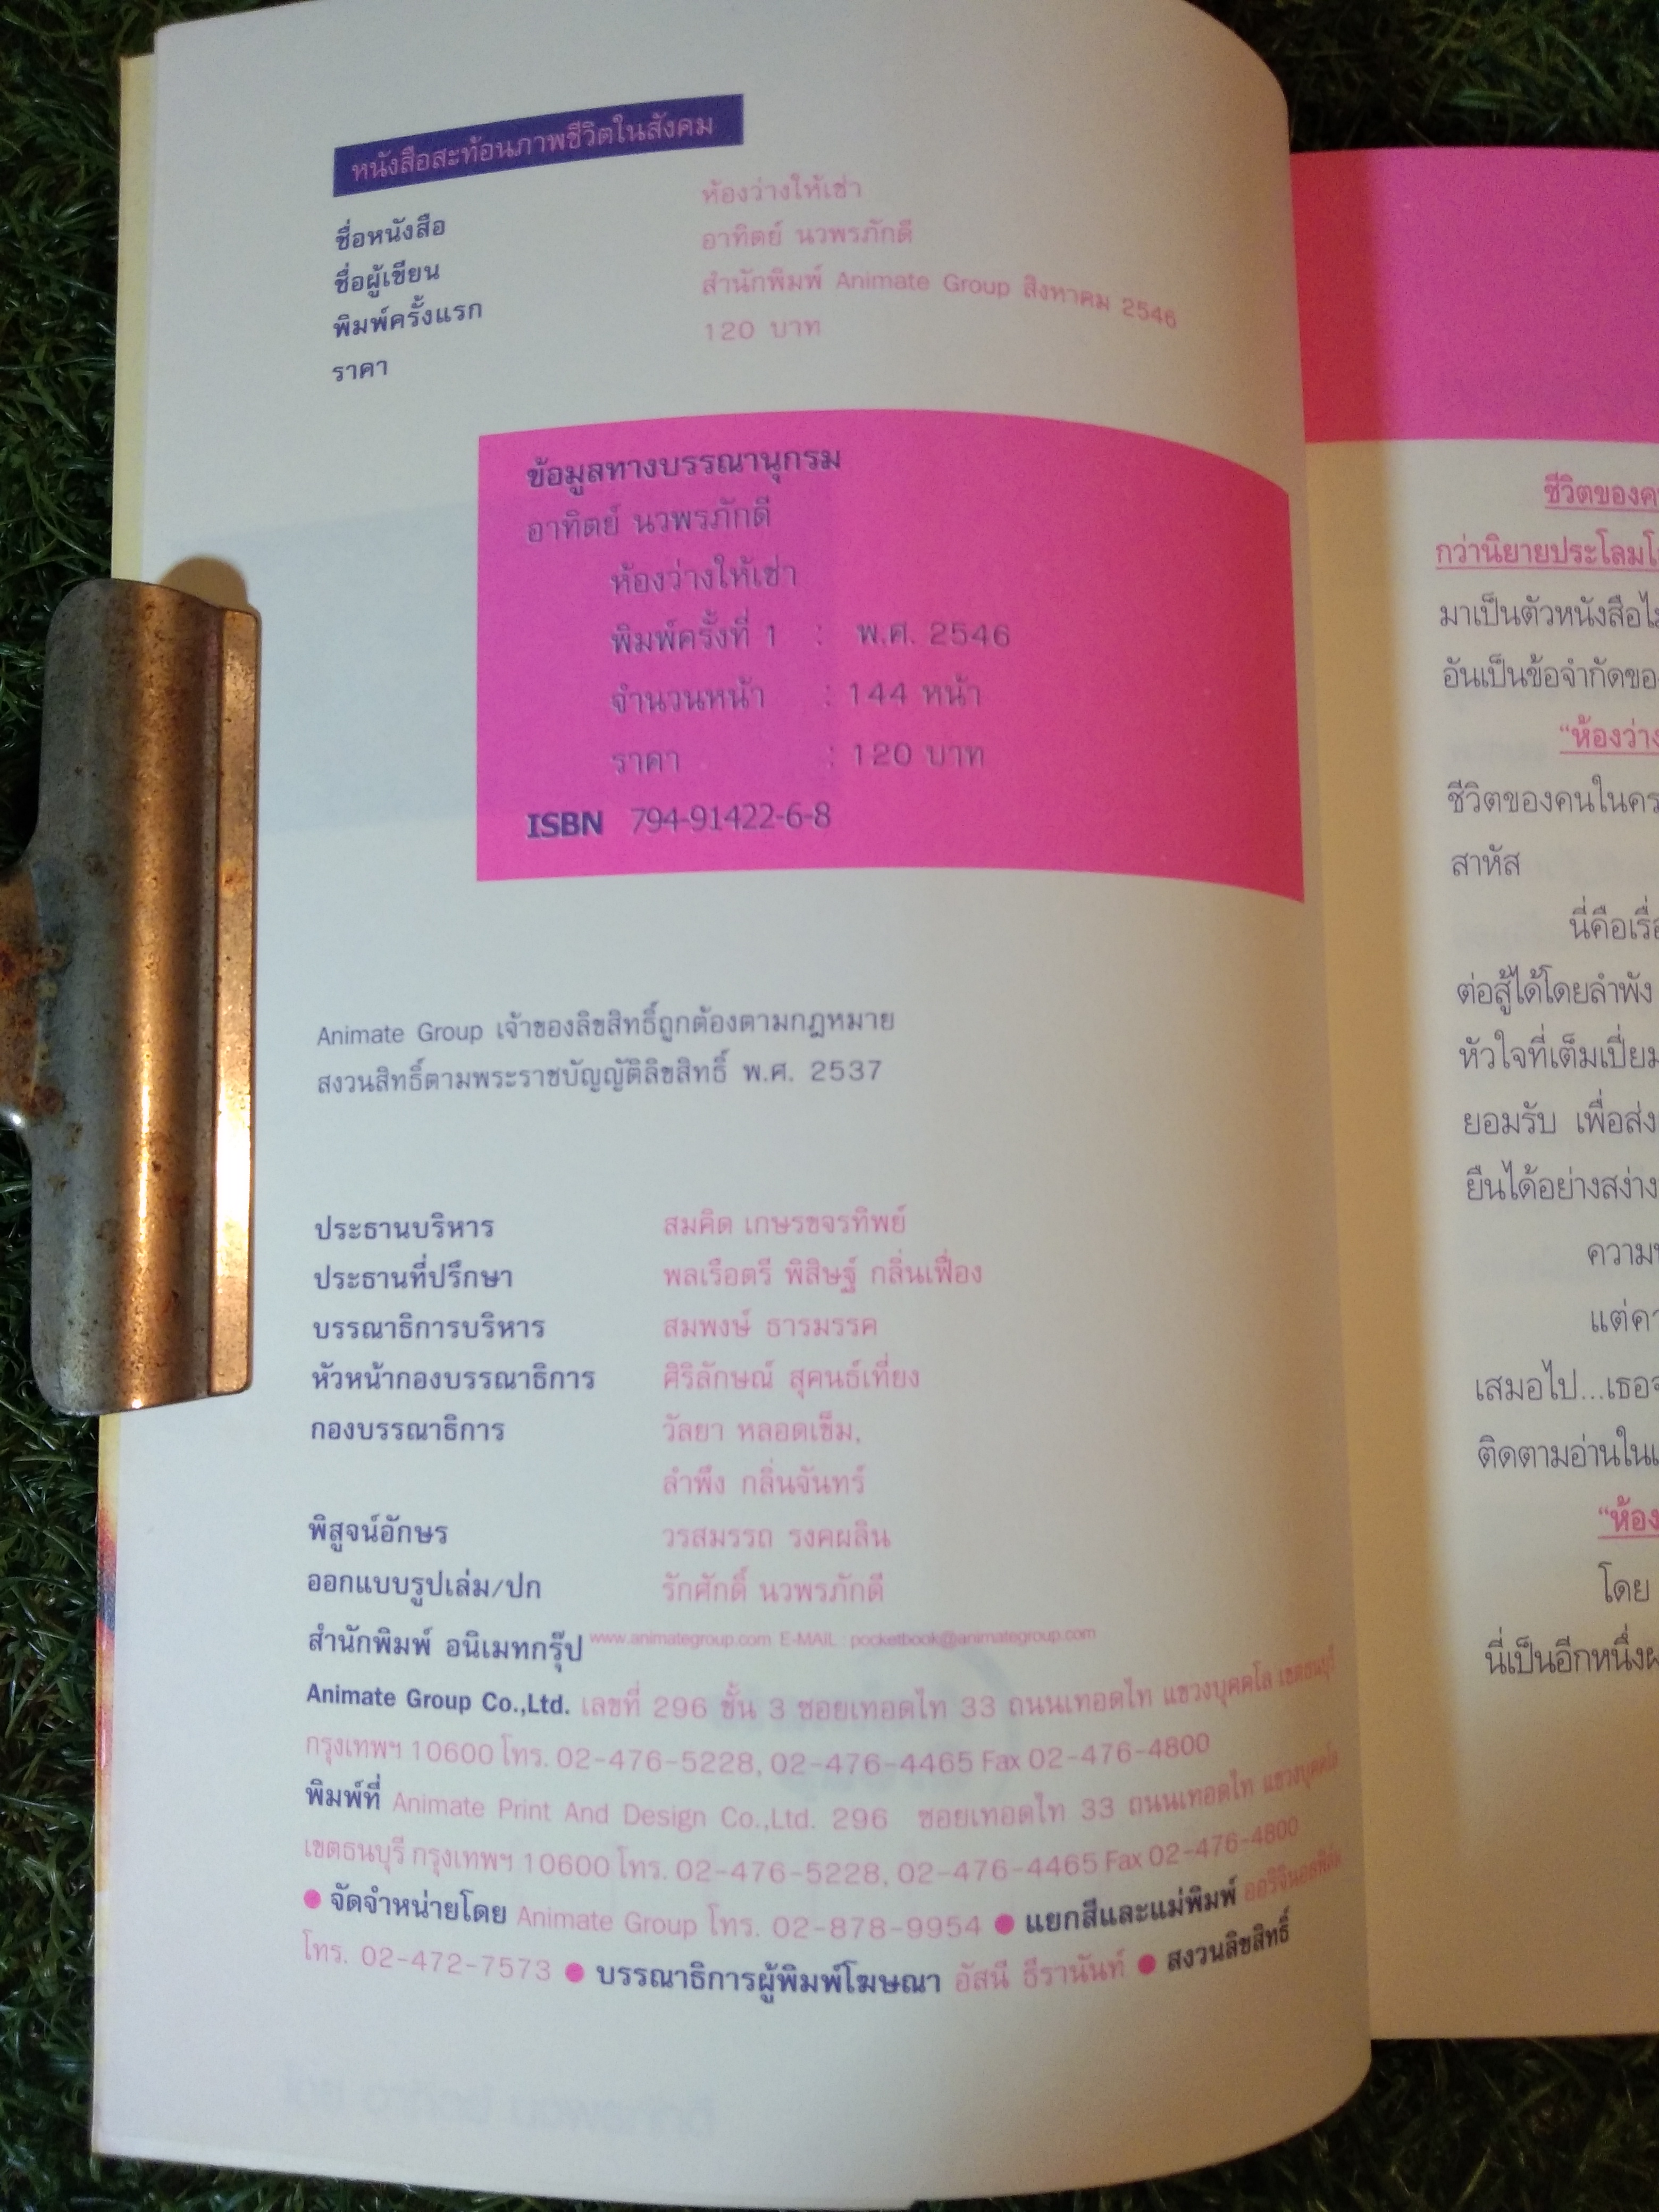 หนังสือสะท้อนภาพชีวิตในสังคม
ชื่อหนังสือ ห้องว่างให้เช่า
ชื่อผู้เขียน อาทิตย์ นวพรภักดี
พิมพ์ครั้งแรก สำนักพิมพ์ Animate Group สิงหาคม 2546
ราคา 120 บาท
ข้อมูลทางบรรณานุกรม
อาทิตย์ นวพรภักดี
ห้องว่างให้เช่า
พิมพ์ครั้งที่ 1 : พ.ศ. 2546
จำนวนหน้า : 144 หน้า
ราคา : 120 บาท
ISBN 794-91422-6-8
Animate Group เจ้าของลิขสิทธิ์ถูกต้องตามกฎหมาย
สงวนสิทธิ์ตามพระราชบัญญัติลิขสิทธิ์ พ.ศ. 2537
ประธานบริหาร สมคิด เกษรขจรทิพย์
ประธานที่ปรึกษา พลเรือตรี พิสิษฐ์ กลิ่นเฟื่อง
บรรณาธิการบริหาร สมพงษ์ ธารมรรค
หัวหน้ากองบรรณาธิการ ศิริลักษณ์ สุคนธ์เที่ยง
กองบรรณาธิการ วัลยา หลอดเข็ม,
ลำพึง กลิ่นจันทร์
พิสูจน์อักษร วรสมรรถ รงคผลิน
ออกแบบรูปเล่ม/ปก รักศักดิ์ นวพรภักดี
สำนักพิมพ์ อนิเมทกรุ๊ป www.animategroup.com E-MAIL : pocketbook@animategroup.com
Animate Group Co.,Ltd. เลขที่ 296 ชั้น 3 ซอยเทอดไท 33 ถนนเทอดไท แขวงบุคคโล เขตธนบุรี
กรุงเทพฯ 10600 โทร. 02-476-5228, 02-476-4465 Fax 02-476-4800
พิมพ์ที่ Animate Print And Design Co.,Ltd. 296 ซอยเทอดไท 33 ถนนเทอดไท แขวงบุคคโล
เขตธนบุรี กรุงเทพฯ 10600 โทร. 02-476-5228, 02-476-4465 Fax 02-476-4800
● จัดจำหน่ายโดย Animate Group โทร. 02-878-9954 ● แยกสีและแม่พิมพ์
โทร. 02-472-7573 ● บรรณาธิการผู้พิมพ์โฆษณา อัสนี ธีรานันท์ ● สงวนลิขสิทธิ์
ชีวิตของค
กว่านิยายประโลมโ
มาเป็นตัวหนังสือไ
อันเป็นข้อจำกัดขอ
"ห้องว่าง
ชีวิตของคนในคร
สาหัส
นี่คือเรื่อ
ต่อสู้ได้โดยลำพัง
หัวใจที่เต็มเปี่ยม
ยอมรับ เพื่อส่ง
ยืนได้อย่างสง่าง
ความ
แต่คว
เสมอไป...เธอจ
ติดตามอ่านใน
"ห้อง
โดย
นี่เป็นอีกหนึ่งผ